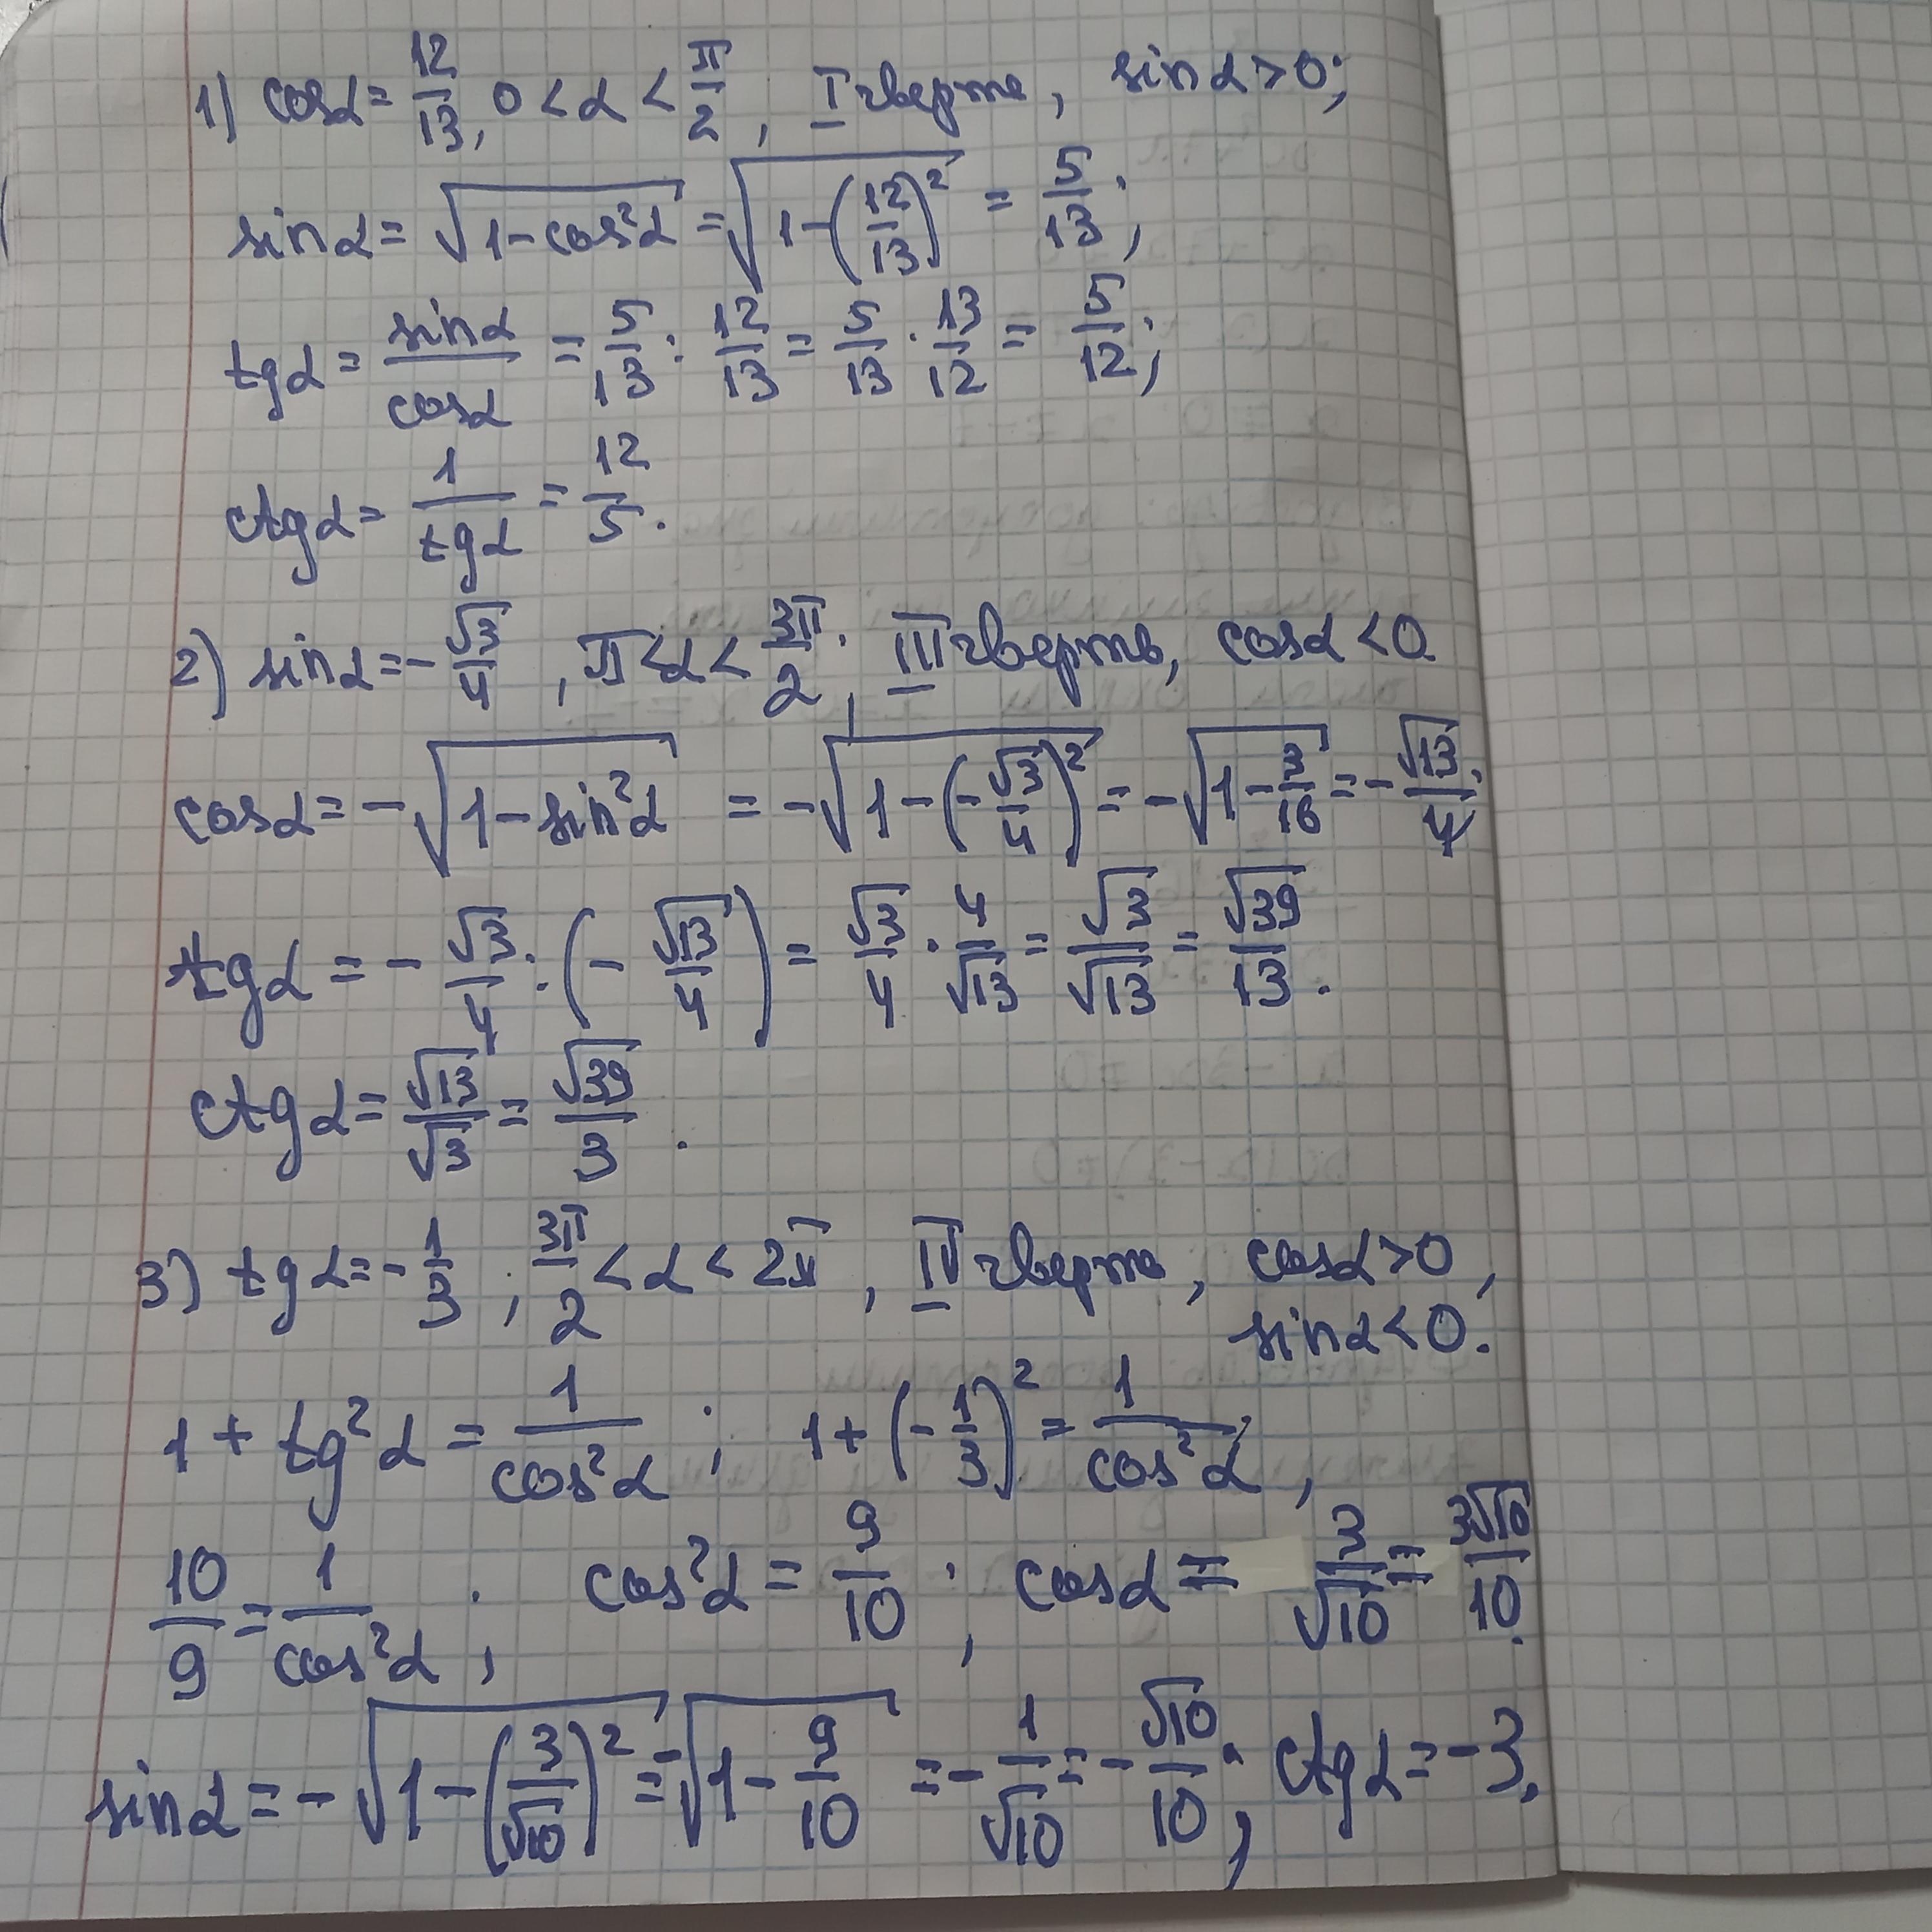 1) cosα = 12/13, 0 < α < π/2, I чверть, sinα > 0;
sinα = √(1 - cos²α) = √(1 - (12/13)²) = 5/13;
tgα = sinα/cosα = 5/13 : 12/13 = 5/13 · 13/12 = 5/12;
ctgα = 1/tgα = 12/5.
2) sinα = -√3/4, π < α < 3π/2; III чверть, cosα < 0
cosα = -√(1 - sin²α) = -√(1 - (-√3/4)²) = -√(1 - 3/16) = -√13/4;
tgα = -√3/4 : (-√13/4) = √3/4 · 4/√13 = √3/√13 = √39/13.
ctgα = √13/√3 = √39/3.
3) tgα = -1/3; 3π/2 < α < 2π, IV чверть, cosα > 0,
sinα < 0.
1 + tg²α = 1/cos²α; 1 + (-1/3)² = 1/cos²α,
10/9 = 1/cos²α; cos²α = 9/10; cosα = 3/√10 = 3√10/10.
sinα = -√(1 - (3/√10)²) = -√(1 - 9/10) = -1/√10 = -√10/10; ctgα = -3.